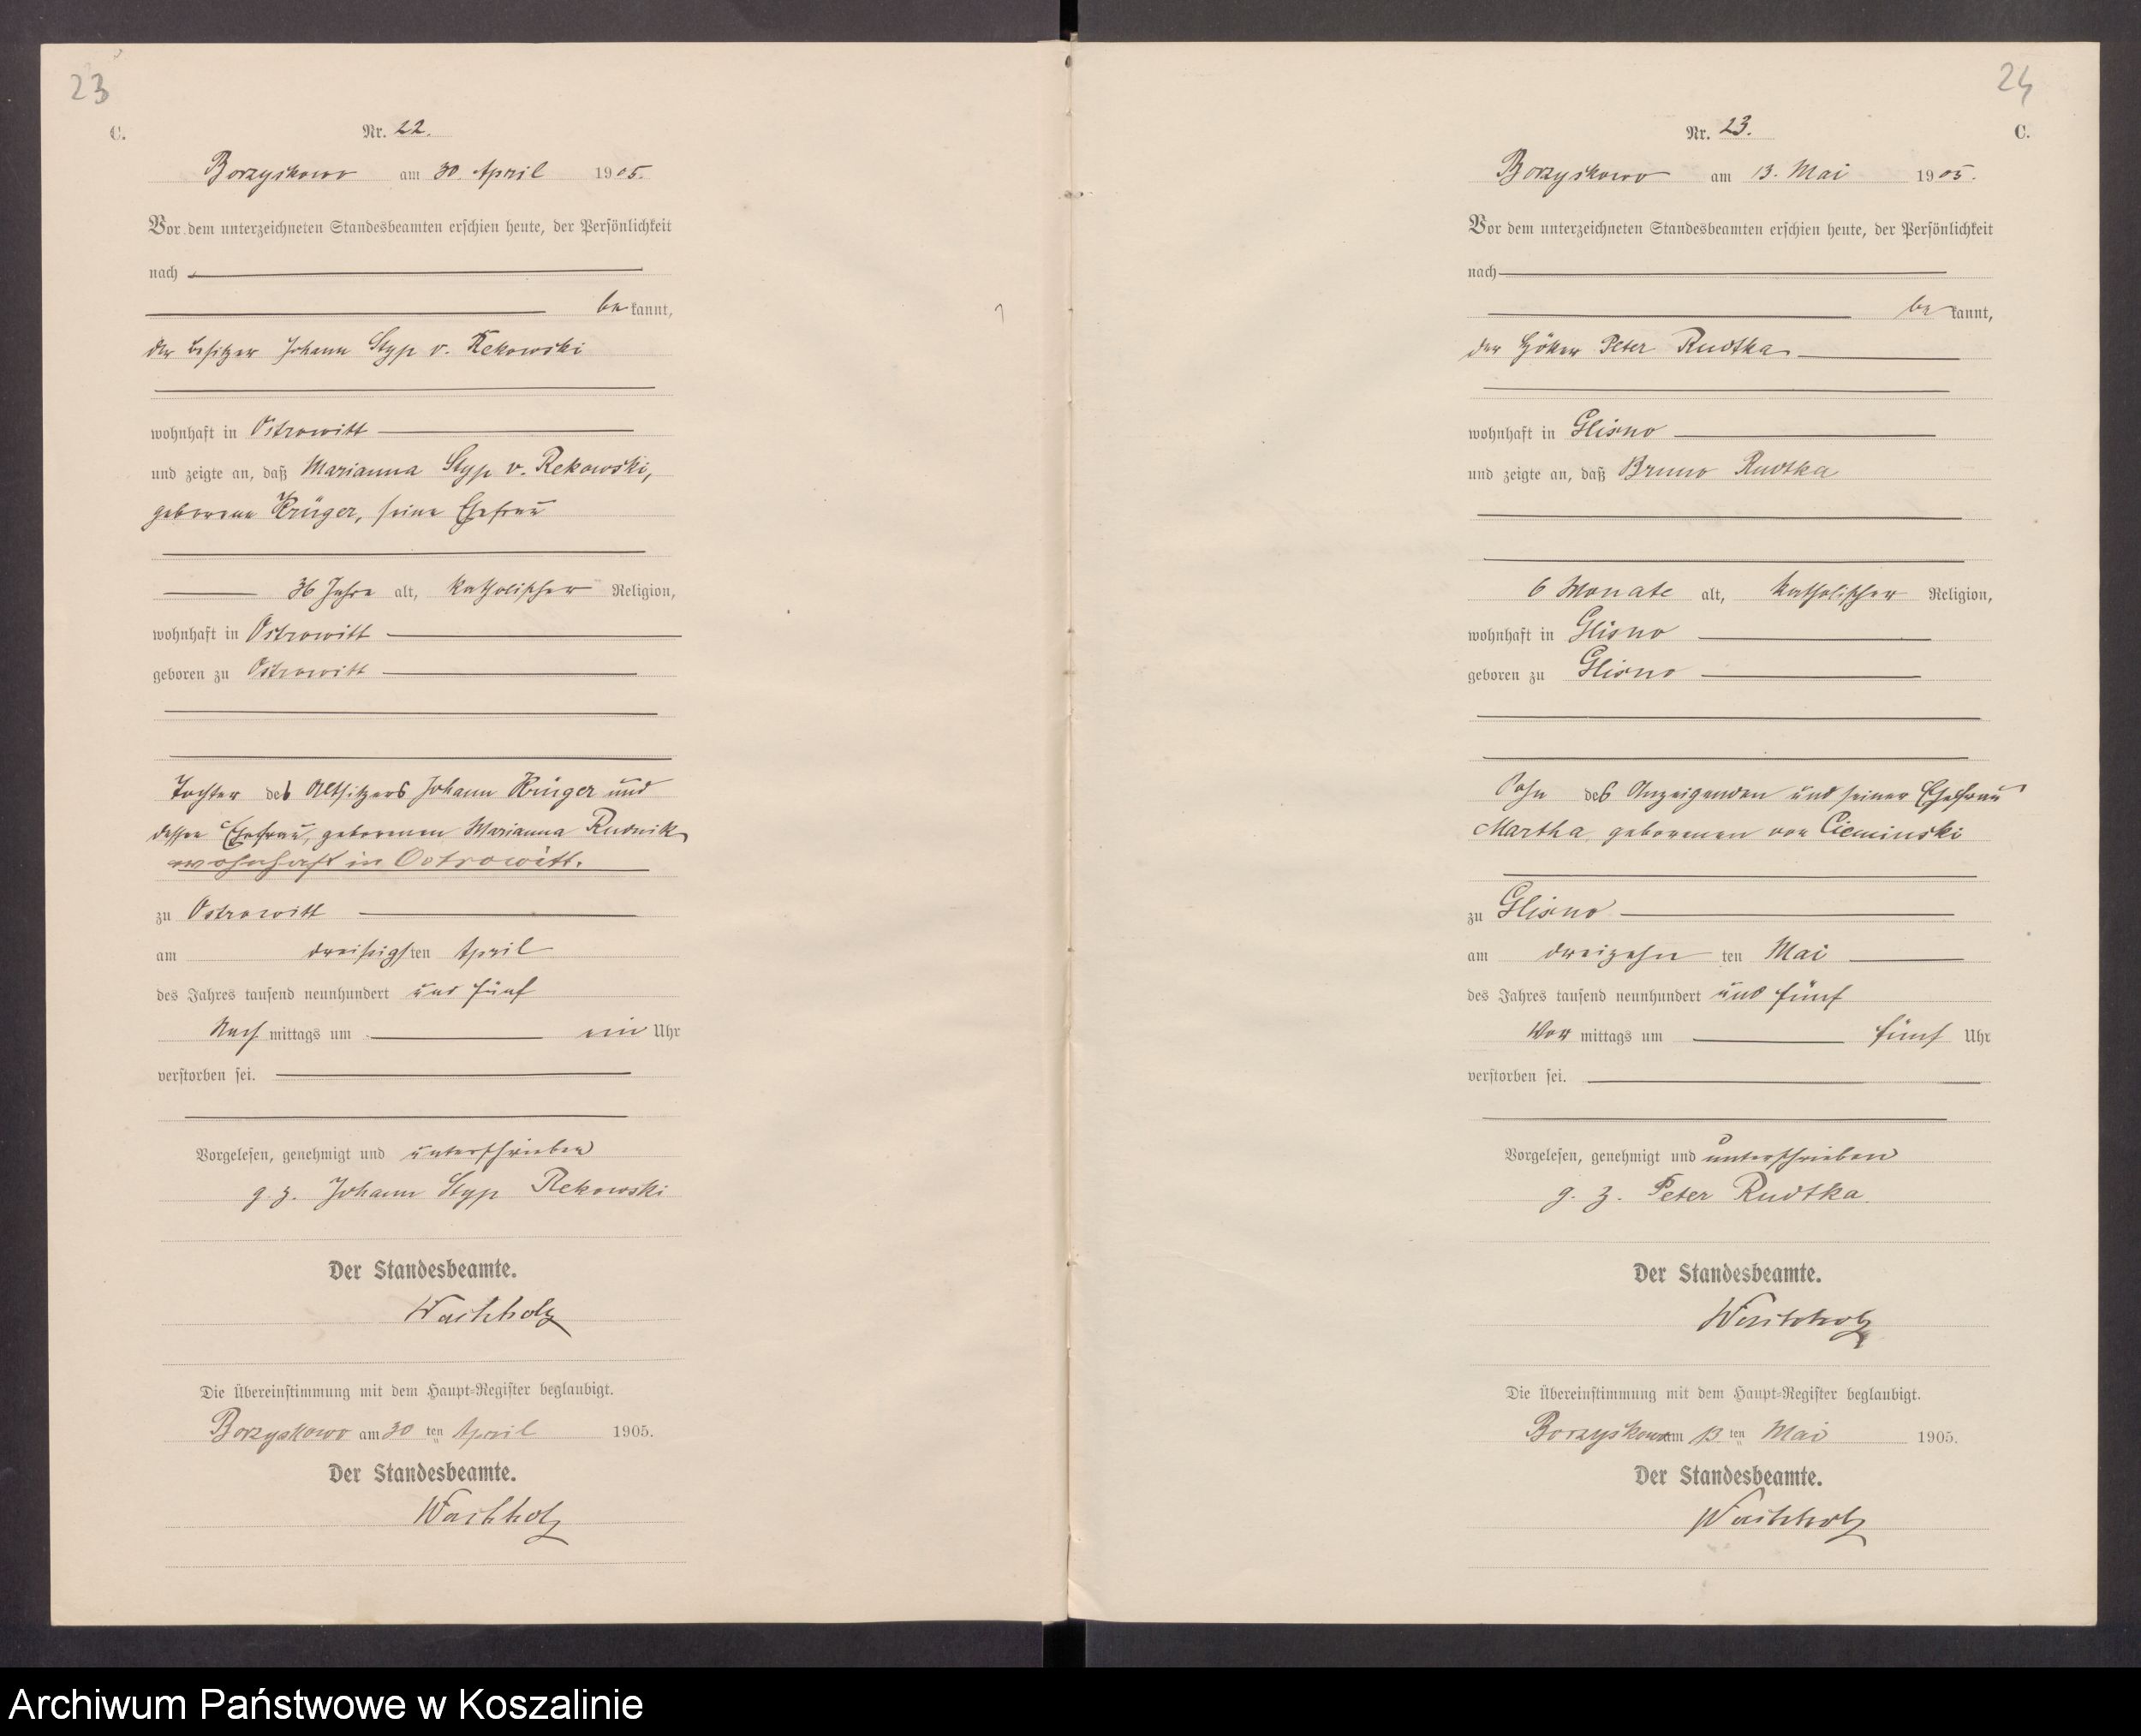 23
C.
Nr. 22.
Borzyskowo am 30. April 1905.
Vor dem unterzeichneten Standesbeamten erschien heute, der Persönlichkeit
nach
bekannt,
der Besitzer Johann Styp v. Rekowski
wohnhaft in Ostrowitt
und zeigte an, daß Marianna Styp v. Rekowski,
geborene Krüger, seine Ehefrau
36 Jahre alt, katholischer Religion,
wohnhaft in Ostrowitt
geboren zu Ostrowitt
Tochter des Altsitzers Johann Krüger und
dessen Ehefrau, geborenen Marianna Rudnik
wohnhaft in Ostrowitt.
zu Ostrowitt
am dreißigsten April
des Jahres tausend neunhundert und fünf
Nachmittags um ein Uhr
verstorben sei.
Vorgelesen, genehmigt und unterschrieben
g. z. Johann Styp Rekowski
Der Standesbeamte.
Wachholz
Die Übereinstimmung mit dem Haupt-Register beglaubigt.
Borzyskowo am 30 ten April 1905.
Der Standesbeamte.
Wachholz
24
Nr. 23.
C.
Borzyskowo am 13. Mai 1905.
Vor dem unterzeichneten Standesbeamten erschien heute, der Persönlichkeit
nach
bekannt,
der Höker Peter Rudtka
wohnhaft in Glisno
und zeigte an, daß Bruno Rudtka
6 Monate alt, katholischer Religion,
wohnhaft in Glisno
geboren zu Glisno
Sohn des Anzeigenden und seiner Ehefrau
Martha, geborenen von Cieminski
zu Glisno
am dreizehn ten Mai
des Jahres tausend neunhundert und fünf
Vormittags um fünf Uhr
verstorben sei.
Vorgelesen, genehmigt und unterschrieben
g. z. Peter Rudtka
Der Standesbeamte.
Wachholz
Die Übereinstimmung mit dem Haupt-Register beglaubigt.
Borzyskowo am 13 ten Mai 1905.
Der Standesbeamte.
Wachholz
Archiwum Państwowe w Koszalinie